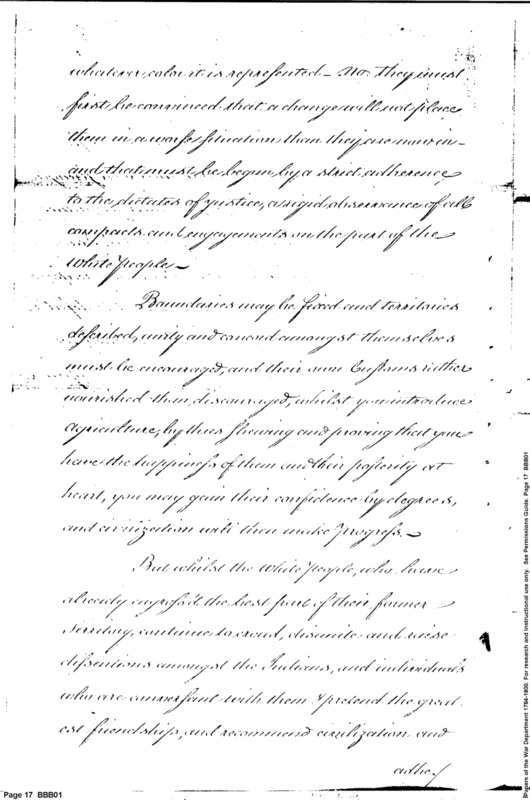 whatever color it is represented – No. They must
first be convinced that a change will not place
them in a worse situation than they are now in –
and that must be begun by a strict adherence
to the dictates of justice, a rigid observance of all
compacts and engagements on the part of the
White people –
Boundaries may be fixed and territories
described, unity and concord amongst themselves
must be encouraged, and their own Customs rather
nourished than discouraged, whilst you introduce
agriculture, by thus shewing and proving that you
have the happiness of them and their posterity at
heart, you may gain their confidence by degrees,
and civilization will then make progress. –
But whilst the White people, who have
already engross'd the best part of their former
Territory, continue to crowd, disunite and raise
dissentions amongst the Indians, and individuals
who are conversant with them & pretend the great-
est friendship, and recommend civilization and
adhe
Page 17 BBB01
Papers of the War Department 1784-1800. For research and instructional use only. See Permissions Guide. Page 17 BBB01